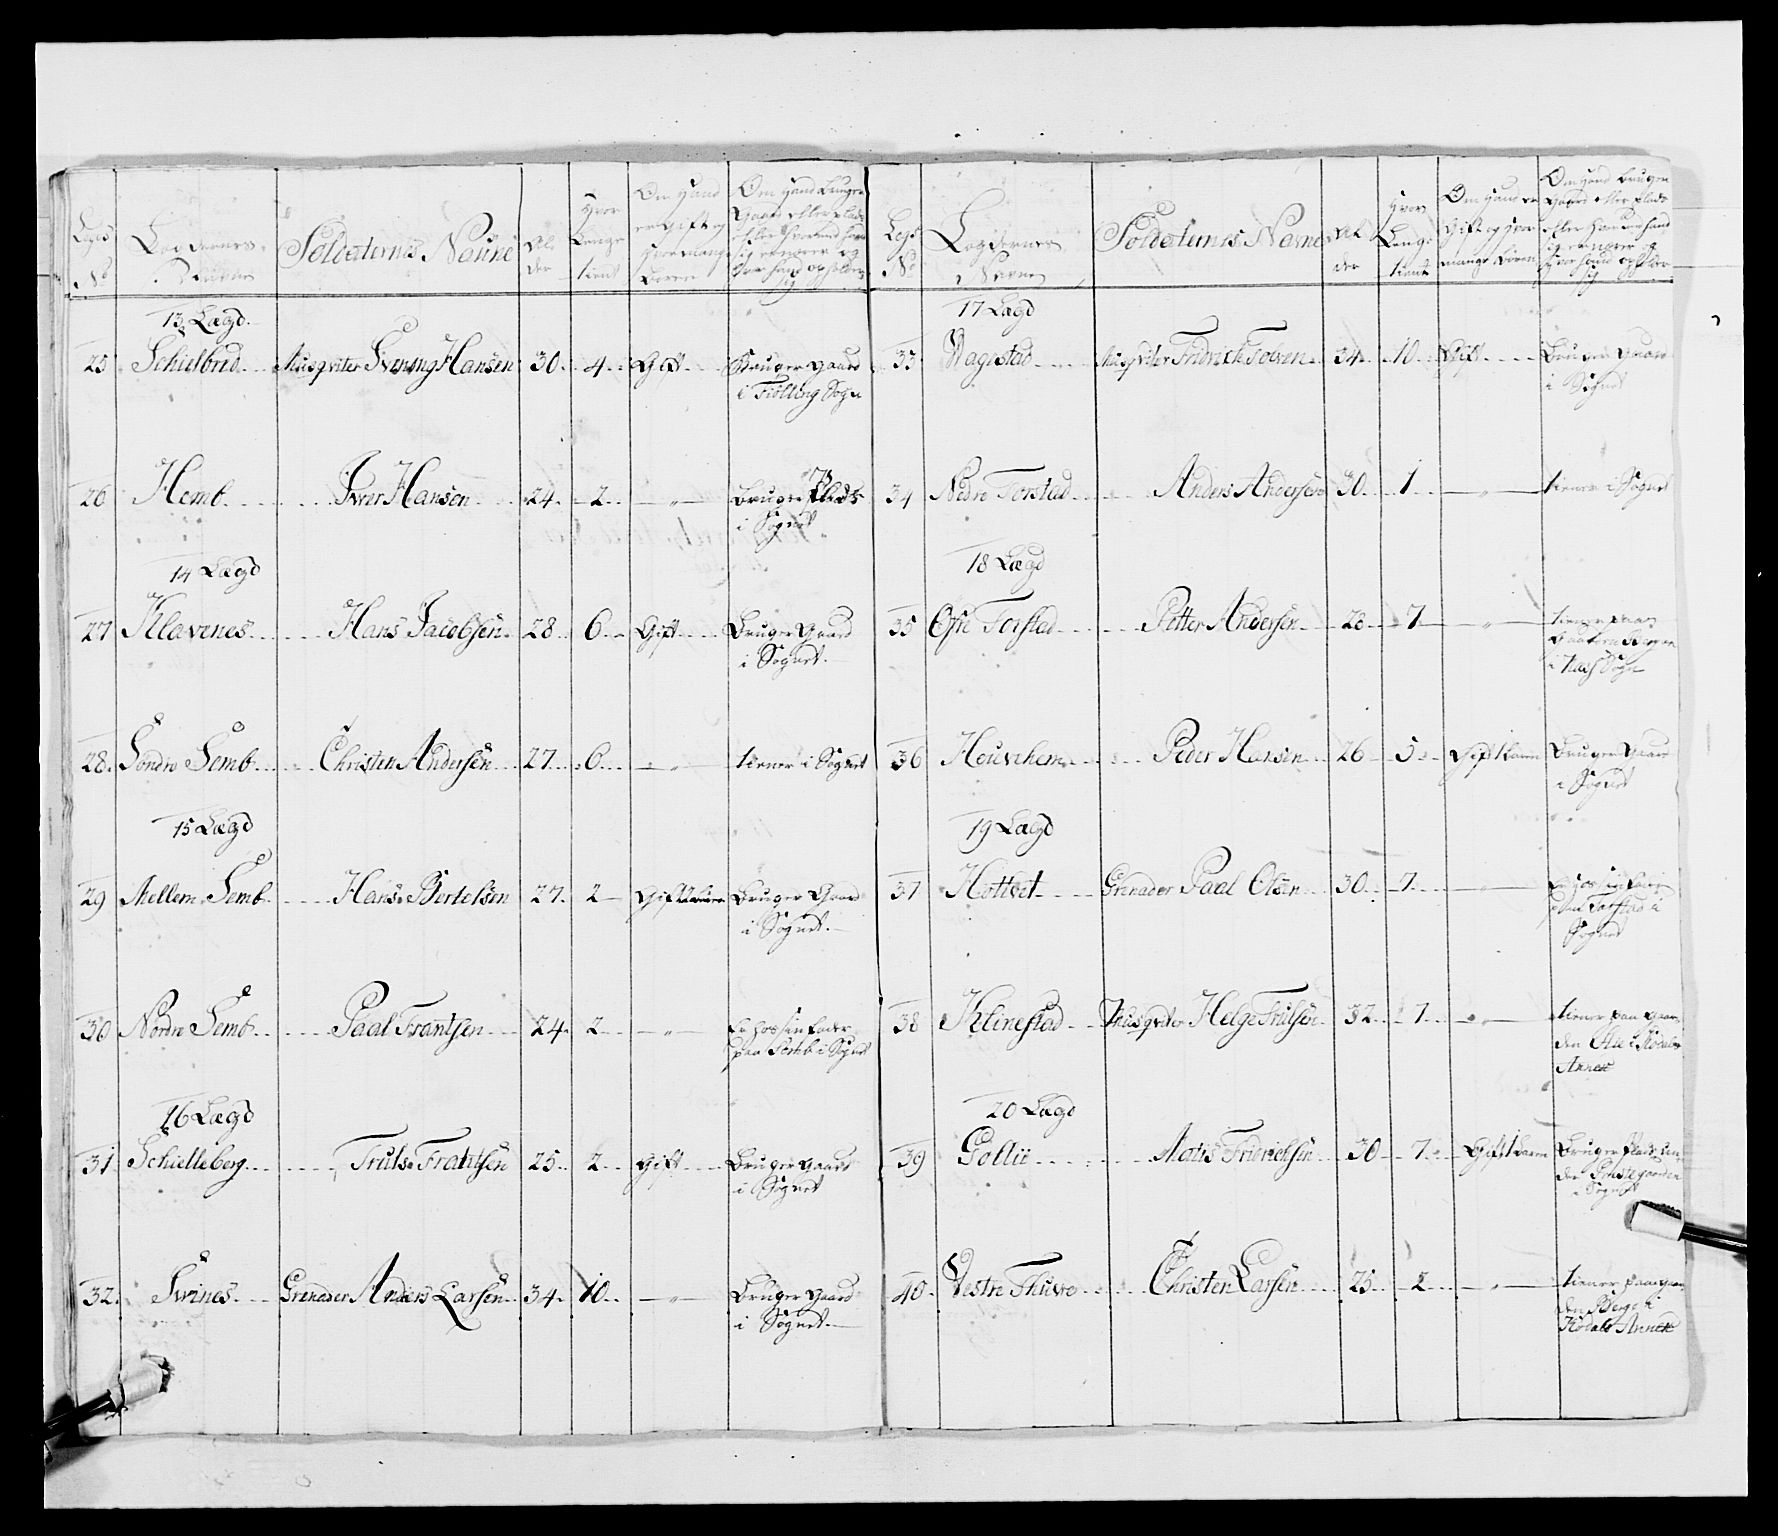 Legs No
Legdernes Navne
Soldaternes Navne
Alder
Hvor Længe tient
Om Hand er Gift og hvor mange Børen
Om Hand bruger Gaard eller Plads eller hvorved hand sig ernærer og hvor hand opholder sig
13 Lægd.
25 Schielbred Musqviter Svening Hansen 30 4 Gift Bruger gaard
i Fiölling Sogn
26 Hemb Iver Hansen 24 2 — " — Bruger Plads
i Sognet
14 Lægd
27 Klavenes Hans Jacobsen 28 6 Gift Bruger Gaard
i Sognet.
28. Söndre Semb Christen Andersen 27 6 — " — tiener i Sognet
15 Lægd
29 Mellem Semb Hans Bertelsen 27 2 Gift Bruger Gaard
i Sognet.
30 Nordre Semb Paal Frantsen 24 2 — " — Er hos sin Fader
paa Semb i Sognet
16 Lægd
31 Schielleberg Truls Frantsen 25 2 Gift Bruger gaard
i Sognet
32. Svines Grenader Anders Larsen 34 10 — " — Bruger gaard
i Sognet.
Legs No
Legdernes Navne
Soldaternes Navne
Alder
Hvor Længe tient
Om Hand er Gift og hvor mange Børen
Om Hand bruger Gaard eller Plads eller hvorved hand sig ernærer og hvor hand opholder sig
17 Lægd
33 Wagestad Musqviter Fridrich 34 10 Gift Bruger gaard
i Sognet
34 Nedre Torstad Anders Andersen 30 1 — " — tiener i Sognet
18 Lægd
35 Öfre Torstad Petter Andersen 28 7 — " — tiener paa
Gaarden Bergen
i Sogn
36 Heuvehem Peder Hansen 26 5 Gift 1 barn Bruger Gaard
i Sognet
19 Lægd
37 Hottvet Grenader Paal Olsen 30 7 — " — Er hos sin Fader
paa Torstad i
Sognet
38 Klinestad Musqviter Helge Trulsen 32 7 " tiener paa Gaar-
den i Kodals
Annex
20 Lægd
39 Gollie Matis Fridrichsen 30 7 Gift 1 barn Bruger Plads un-
der Præstegaarden
i Sognet
40 Vestre Thuve Christen Larsen 25 2 — " — tiener paa gaar
den Berge i
Kodals Annex